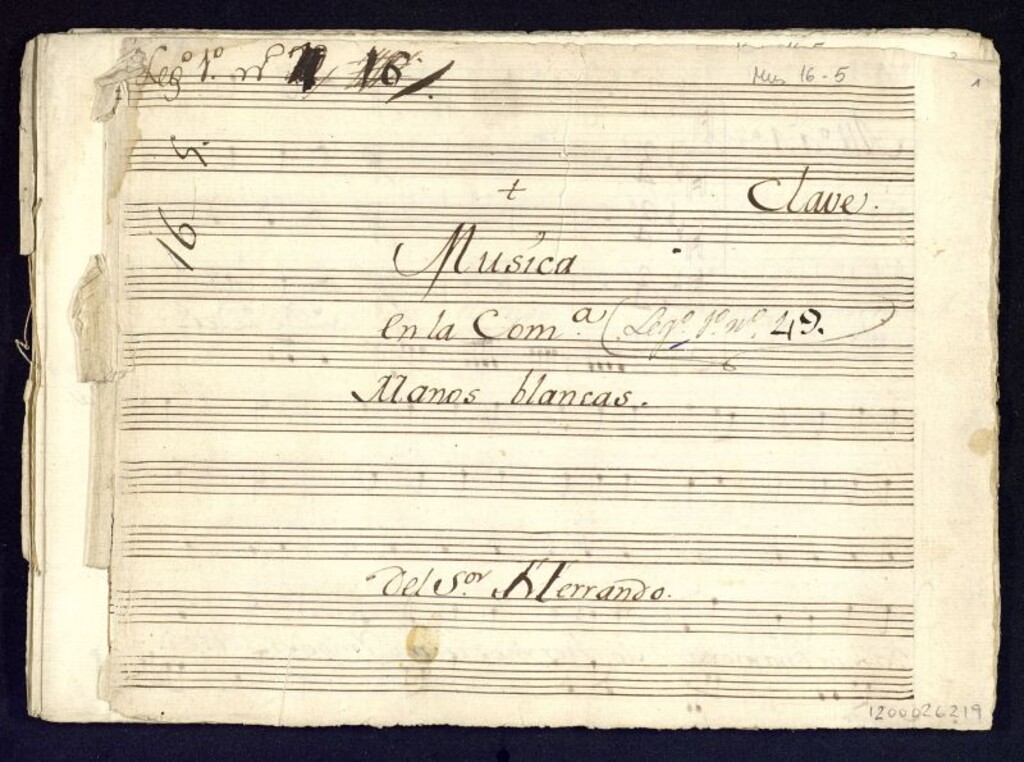 Leg.º 1.º nº 16
Mus 16-5
1
5.
16
Clave.
Musica
En la Com.ª (Leg.º 1.º nº. 49.
Manos blancas.
Del S.or Herrando.
1200026219